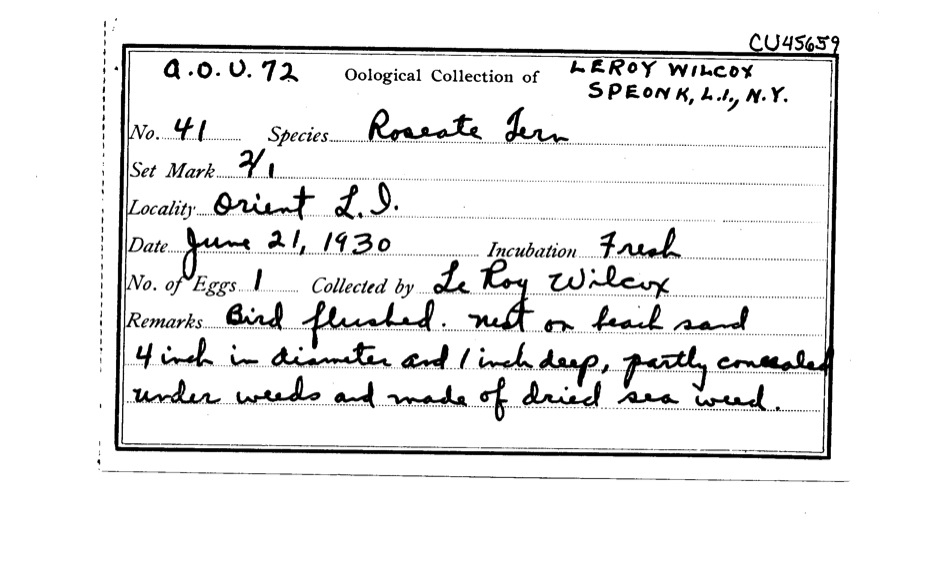 CU45659
A.O.U. 72 Oological Collection of LEROY WILCOX
SPEONK, L.I., N.Y.
No. 41 Species Roseate Tern
Set Mark 2/1
Locality Orient L.I.
Date June 21, 1930 Incubation Fresh
No. of Eggs 1 Collected by Le Roy Wilcox
Remarks Bird flushed. nest on beach sand
4 inch in diameter and 1 inch deep, partly concealed
under weeds and made of dried sea weed.